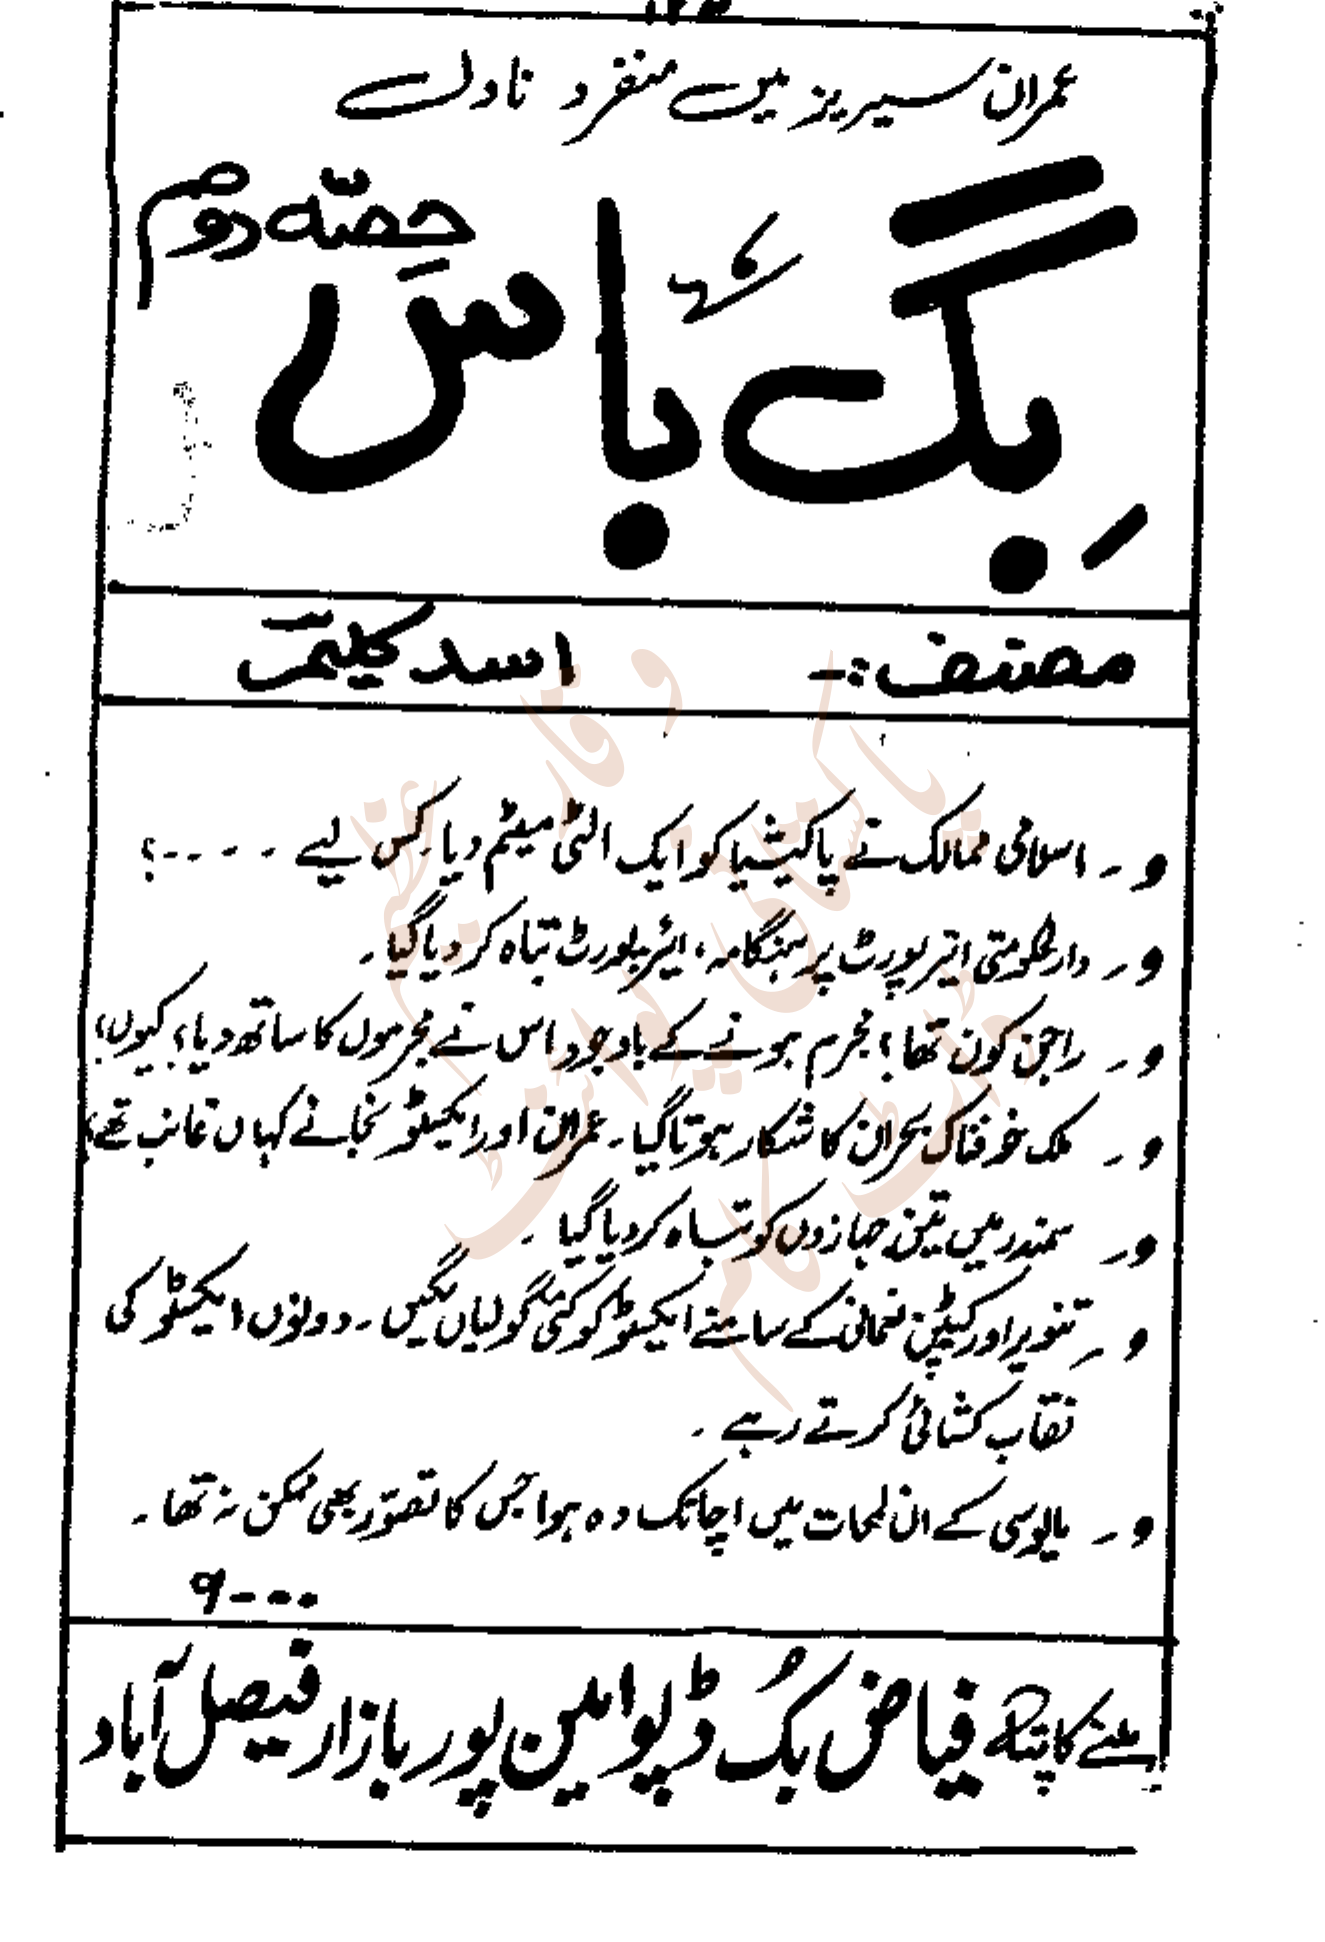 عمران سیریز میں منفرد ناول
حصّہ دوم
بِگ باس
مصنف :- اسد کلیم
و ۔ اسلامی ممالک نے پاکیشیا کو ایک الٹی میٹم دیا ۔ کس لیے ۔ ۔ ۔ ۔ ؟
و ۔ دارلحکومتی ایئر پورٹ پر ہنگامہ ، ایئر پورٹ تباہ کر دیا گیا ۔
و ۔ راجن کون تھا ؟ مجرم ہونے کے باوجود اس نے مجرموں کا ساتھ دیا ؟ کیوں ؟
و ۔ ملک خوفناک بحران کا شکار ہوتا گیا ۔ عمران اور ایکسٹو نجانے کہاں غائب تھے ؟
و ۔ سمندر میں تین جہازوں کو تباہ کر دیا گیا ۔
و ۔ تنویر اور کیپٹن نعمانی کے سامنے ایکسٹو کو کئی گولیاں لگیں ۔ دونوں ایکسٹو کی
نقاب کشائی کرتے رہے ۔
و ۔ مایوسی کے ان لمحات میں اچانک وہ ہوا جس کا تصوّر بھی ممکن نہ تھا ۔
۔ ۔ ۔ ۹
ملنے کا پتہ فیاض بُک ڈپو امین پور بازار فیصل آباد
پاکستانی پوائنٹ ڈاٹ کام